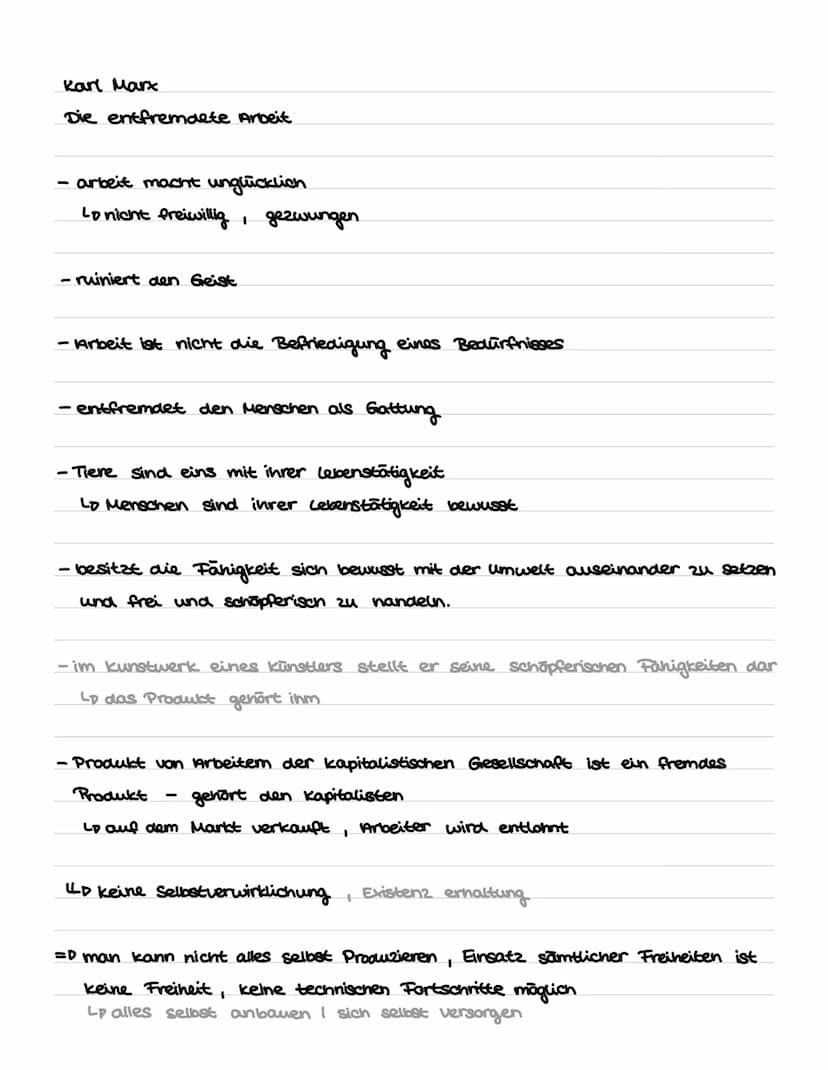 Karl Marx
Die entfremdete Arbeit
- arbeit macht unglücklich
↳ nicht freiwillig, gezwungen
- ruiniert den Geist
- Arbeit ist nicht die Befriedigung eines Bedürfnisses
- entfremdet den Menschen als Gattung
- Tiere sind eins mit ihrer Lebenstätigkeit
↳ Menschen sind ihrer Lebenstätigkeit bewusst
- besitzt die Fähigkeit sich bewusst mit der Umwelt auseinander zu setzen
und frei und schöpferisch zu handeln.
- im Kunstwerk eines Künstlers stellt er seine schöpferischen Fähigkeiten dar
↳ das Produkt gehört ihm
- Produkt von Arbeitern der kapitalistischen Gesellschaft ist ein fremdes
Produkt - gehört den Kapitalisten
↳ auf dem Markt verkauft, Arbeiter wird entlohnt
↳ keine Selbstverwirklichung, Existenz erhaltung
=> man kann nicht alles selbst Produzieren, Einsatz sämtlicher Freiheiten ist
keine Freiheit, keine technischen Fortschritte möglich
↳ alles selbst anbauen / sich selbst versorgen